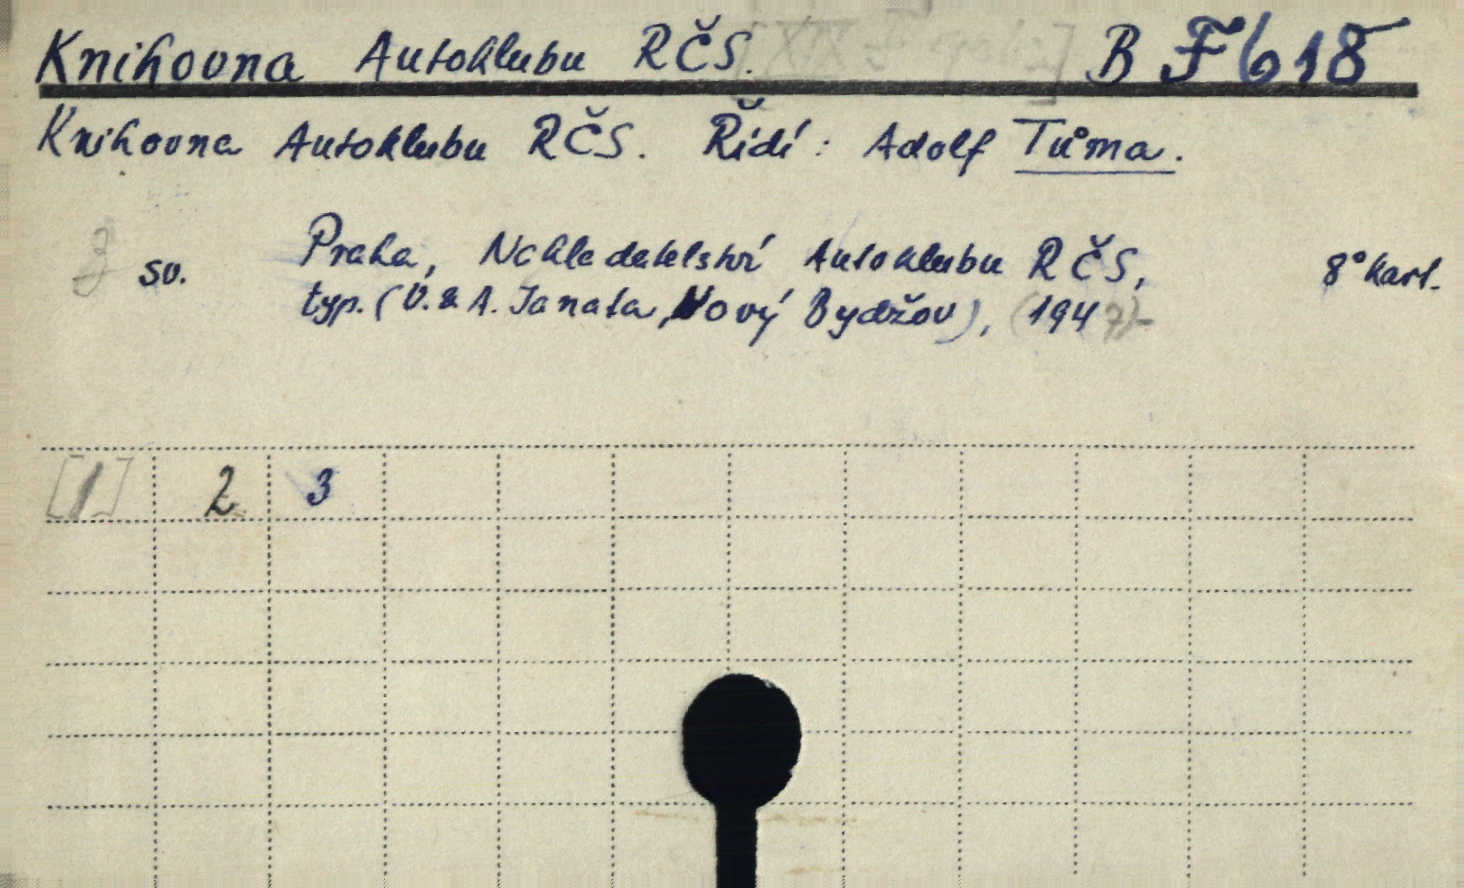 Knihovna Autoklubu RČS. B F 618
Knihovna Autoklubu RČS. Řídí: Adolf Tůma.
3 sv. Praha, Nakladatelství Autoklubu RČS, 8° kart.
typ. (V. & A. Janata, Nový Bydžov), (1947)-
[1] 2 3